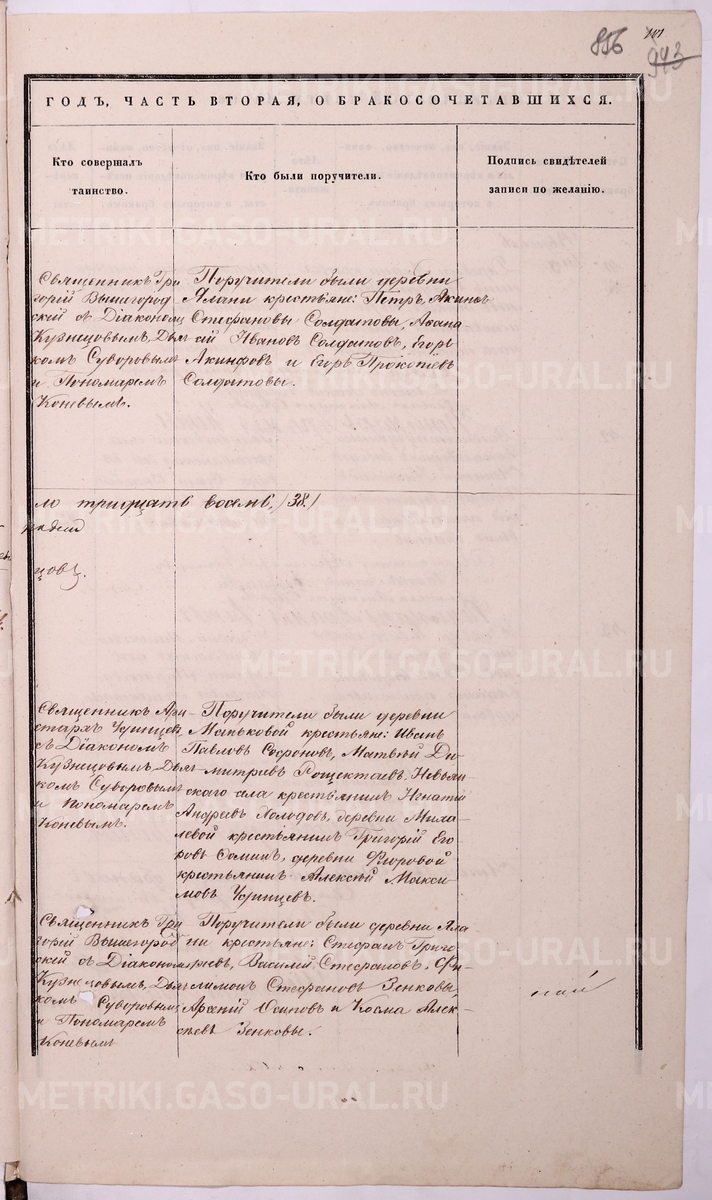 856
943
ГОДЪ, ЧАСТЬ ВТОРАЯ, О БРАКОСОЧЕТАВШИХСЯ.
Кто совершалъ
таинство.
Кто были поручители.
Подпись свидѣтелей
записи по желанію.
Священникъ Гри
горій Вышегород
ской съ Діакономъ
Кузнецовымъ, Дья
комъ Суворовымъ
и Пономаремъ
Коневымъ.
Поручители были деревни
Ялани крестьяне: Петръ, Акинѳ
Стефановы Солдатовы, Аѳана
сій Ивановъ Солдатовъ, Егоръ
Акинфовъ и Егоръ Прокопьевъ
Солдатовы.
ло тридцать восемь /38./
цовъ.
Священникъ Ари
стархъ Удинцевъ
съ Діакономъ
Кузнецовымъ, Дья
комъ Суворовымъ
и Пономаремъ
Коневымъ.
Поручители были деревни
Маньковой крестьяне: Иванъ
Павловъ Софоновъ, Матвѣй Ди
митріевъ Рощектаевъ, Невьян
скаго села крестьянинъ Игнатій
Андреевъ Холодовъ, деревни Миха
левой крестьянинъ Григорій Его
ровъ Сосминъ, деревни Флоровой
крестьянинъ Алексѣй Макси
мовъ Удинцевъ.
Священникъ Гри
горій Вышегород
ской съ Діакономъ
Кузнецовымъ, Дья
комъ Суворовымъ
и Пономаремъ
Коневымъ
Поручители были деревни Яла
ни крестьяне: Стефанъ Григо
рьевъ, Василій Стефановъ, Фи
лимонъ Стефановъ Зенковы,
Арсеній Осиповъ и Косма Алек
сѣевъ Зенковы.
METRIKI.GASO-URAL.RU